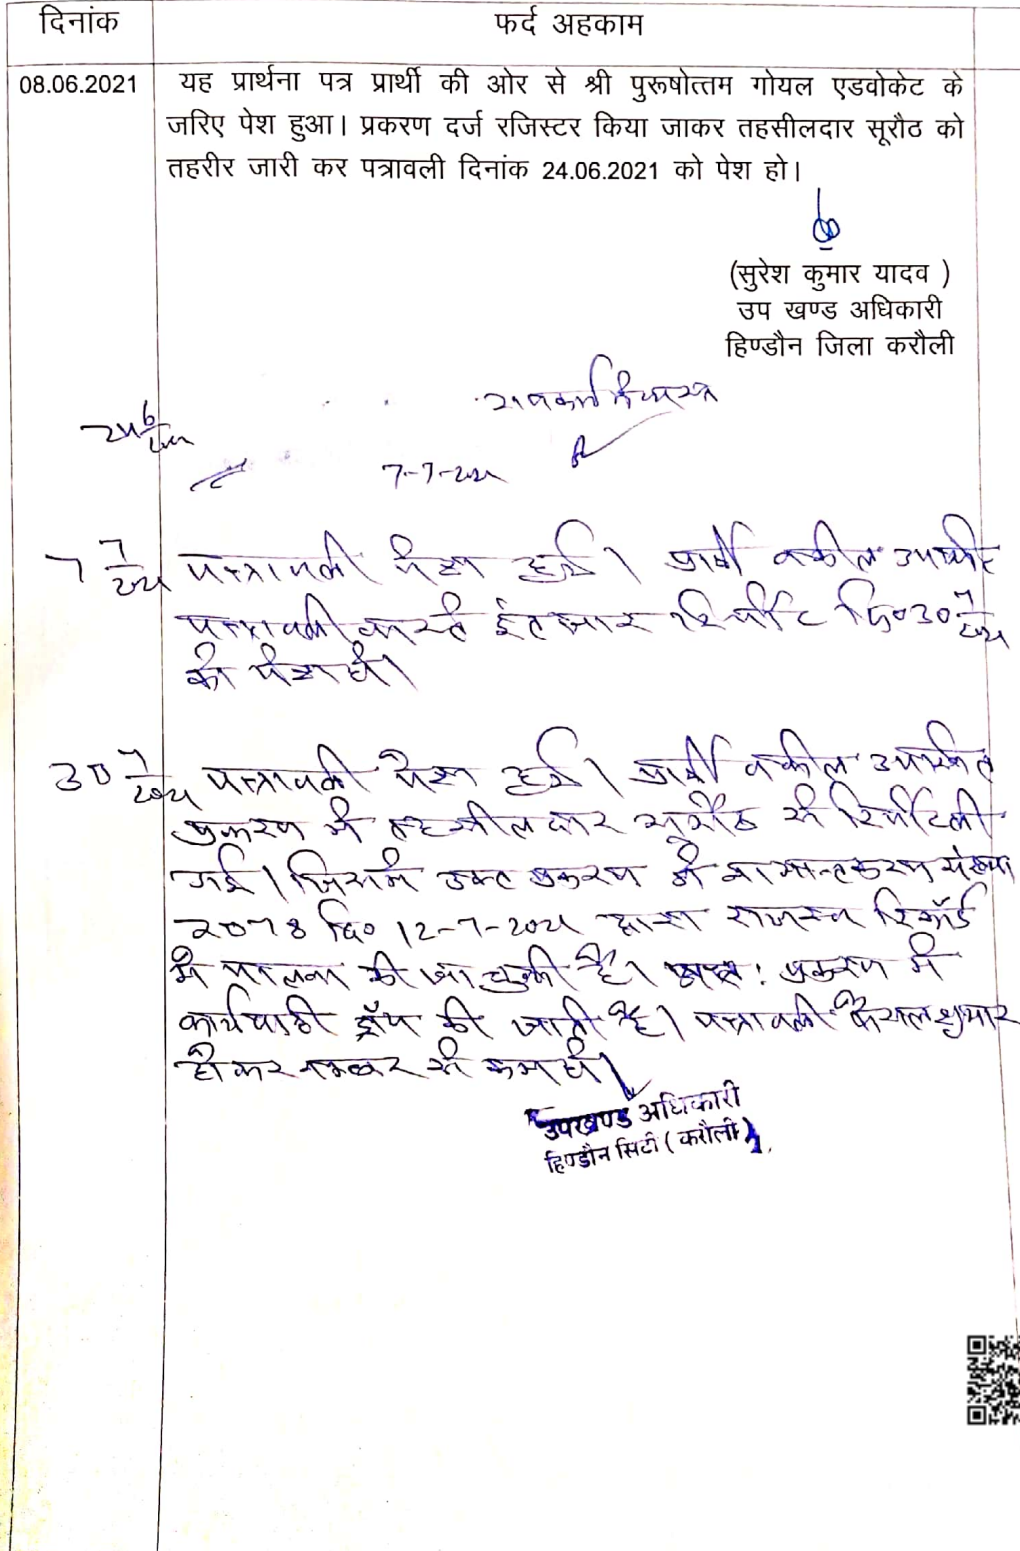 दिनांक
फर्द अहकाम
08.06.2021
यह प्रार्थना पत्र प्रार्थी की ओर से श्री पुरूषोत्तम गोयल एडवोकेट के
जरिए पेश हुआ। प्रकरण दर्ज रजिस्टर किया जाकर तहसीलदार सूरौठ को
तहरीर जारी कर पत्रावली दिनांक 24.06.2021 को पेश हो।
(सुरेश कुमार यादव )
उप खण्ड अधिकारी
हिण्डौन जिला करौली
7-7-2021
7/7/2021 पत्रावली पेश हुई। प्रार्थी वकील उपस्थित
पत्रावली वास्ते इंतजार रिपोर्ट दि० 30/7/2021
को पेश हो।
30/7/2021 पत्रावली पेश हुई। प्रार्थी वकील उपस्थित
प्रकरण में तहसीलदार सूरौठ से रिपोर्ट ली
गई। जिसमें उक्त प्रकरण में नामान्तकरण संख्या
2078 दि० 12-7-2021 द्वारा राजस्व रिकॉर्ड
में पालना की जा चुकी है। अतः प्रकरण में
कार्यवाही ड्रॉप की जाती है। पत्रावली फैसल शुमार
होकर नम्बर से कम हो।
उपखण्ड अधिकारी
हिण्डौन सिटी (करौली)